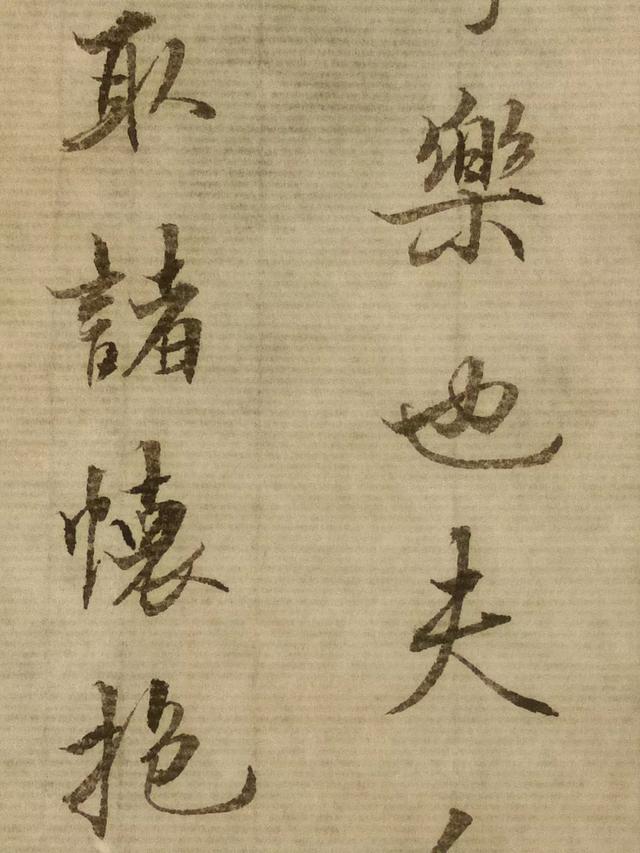 樂也夫
取諸懷抱